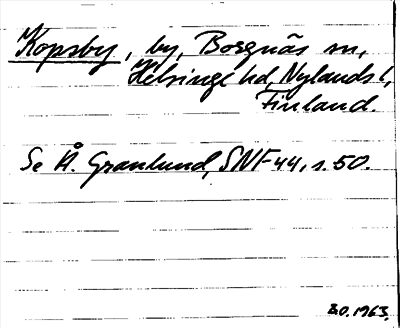 Kopsby, by, Borgnäs sn,
Helsinge hd, Nylands l,
Finland.
Se Å. Granlund, SNF 44, s. 50.
B.O. 1963.